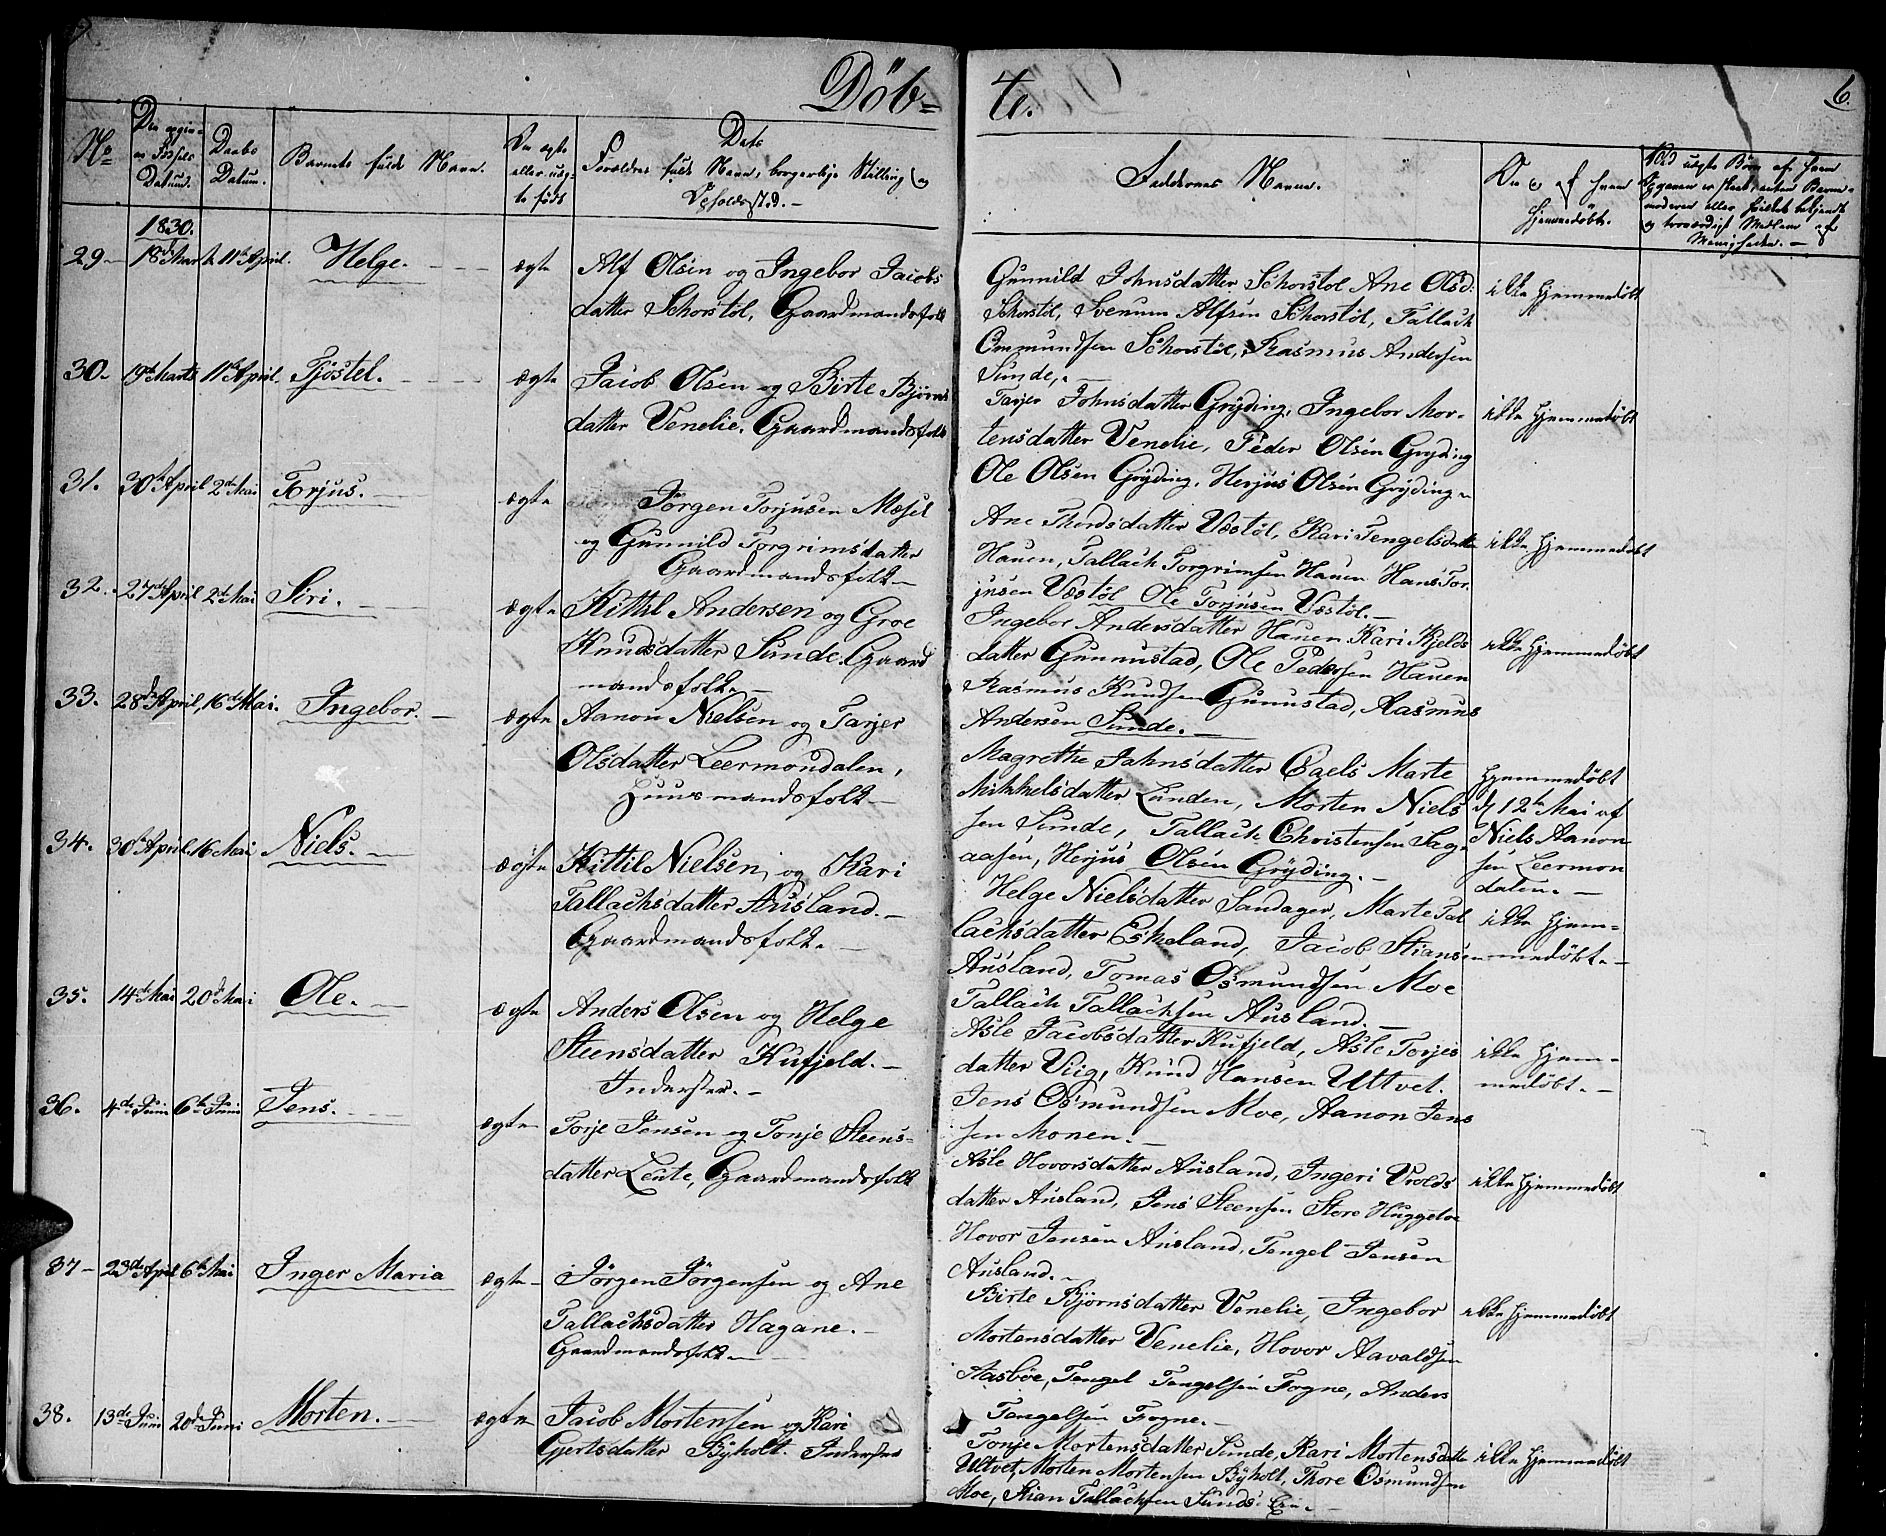 Döb=
te.
6.
No
Den opgiv=
ne Fødsels
Datum.
Daabs
Datum.
Barnets fulde Navn.
Om ægte
eller uæg=
te født
Dets
Forældres fulde Navn, borgerlige Stilling og
Opholdssted.-
Faddernes Navne.
Om og af hvem
hjemmedøbt.
Ved uægte Børn af hvem
Opgaven er skeet, enten Barne=
moderen eller hvilket bekjendt
og troværdigt Medlem af
Menigheden.-
1830.
29- 18de Marts 11te April. Helge. ægte
Alf Olsen og Ingebor Jacobs
datter Schorstöl, Gaardmandsfolk
Gunnild Johnsdatter Schorstol Ane Olsd:
Schorstöl, Svenum Alfsen Schorstöl, Tallach
Omundsen Schorstöl, Rasmus Andersen
Sunde,.-
ikke hjemmedöbt
30. 19de Marts 11te April. Tjöstel. ægte
Jacob Olsen og Birte Björns
datter Venelie, Gaardmandsfolk
Tarjer Johnsdatter Gryding, Ingebor Mor=
tensdatter Venelie, Peder Olsen Gryding
Ole Olsen Gryding, Herjus Olsen Gryding-
ikke hjemmedöbt
31. 30te April 2de Mai Terjus. ægte
Jörgen Torjusen Mæsel
og Gunnild Torgrimsdatter
Gaardmandsfolk-
Ane Thordsdatter Væstöl, Kari Tengelsdatte
Hauen, Tallach Torgrimsen Hauen Hans Tor.
jusen Væstöl Ole Torjusen Væstöl.-
ikke hjemmedöbt
32. 27de April 2de Mai Siri. ægte
Kittil Andersen og Groe
Knudsdatter Sunde. Gaard
mandsfolk.-
Ingebor Andersdatter Hauen Kari Kjelds
datter Gunnustad, Ole Pedersen Hauen
Rasmus Knudsen Gunnustad, Rasmus
Andersen Sunde.-
ikke hjemmedöbt
33. 28de April, 16de Mai. Ingebor.- ægte
Aanon Nielsen og Tarjer
Olsdatter Leermondalen,
Huusmandsfolk-
Magrethe Jahnsdatter Egels Marte
Mikkelsdatter Lunden, Morten Niels
sen Sunde, Tallach Christensen Sag=
aasen, Herjus Olsen Gryding.-
hjemmedöbt
d 12te Mai af
Niels Aanon
sen Leermon
dalen.-
34. 30te April. 16 Mai Niels.- ægte
Kittil Nielsen, og Kari
Tallachsdatter Ausland.-
Gaardmandsfolk.-
Helge Nielsdatter Sandager, Marte Tal
lachsdatter Eskeland, Jacob Stiansen
Ausland, Tomas Osmundsen Moe
Tallach Tallachsen Ausland.-
ikke hjem=
medöbt.-
35. 14de Mai 20de Mai Ole.- ægte
Anders Olsen og Helge
Steensdatter Kufjeld.-
Inderster.-
Asle Jacobsdatter Kufjeld, Asle Torjes
datter Viig, Knud Hansen Uttvet.
Jens Osmundsen Moe, Aanon Jens
sen Monen.-
ikke hjem=
medöbt.-
36. 4de Juni 6te Juni Jens. ægte
Torje Jensen og Tonje Steens=
datter Leite, Gaardmandsfolk
Asle Hovorsdatter Ausland, Ingeri Vrolds
datter Ausland, Jens Steensen Store Huggelve
Hovor Jensen Ausland, Tengel Jensen
Ausland.-
ikke hjemmedöbt
37- 23de April 6te Mai Inger Maria ægte-
Jörgen Jörgensen og Ane
Tallachsdatter Hagane.-
Gaardmandsfolk-
Birte Björnsdatter Venelie, Ingebor
Mortensdatter Venelie, Hovor Aavaldsen
Aasböe, Tengel Tengelsen Fogne, Anders
Tengelsen Fogne.-
ikke hjemmedöbt
38. 13de Juni 20de Juni Morten. ægte
Jacob Mortensen og Kari
Gjertsdatter Byholt. Inderster
Tonje Mortensdatter Sunde, Kari Mortensdatte
Uttvet, Morten Mortensen Byholt, Thore Osmundsen
Moe, Stian Tallachsen Sunds
ikke hjemmedöbt